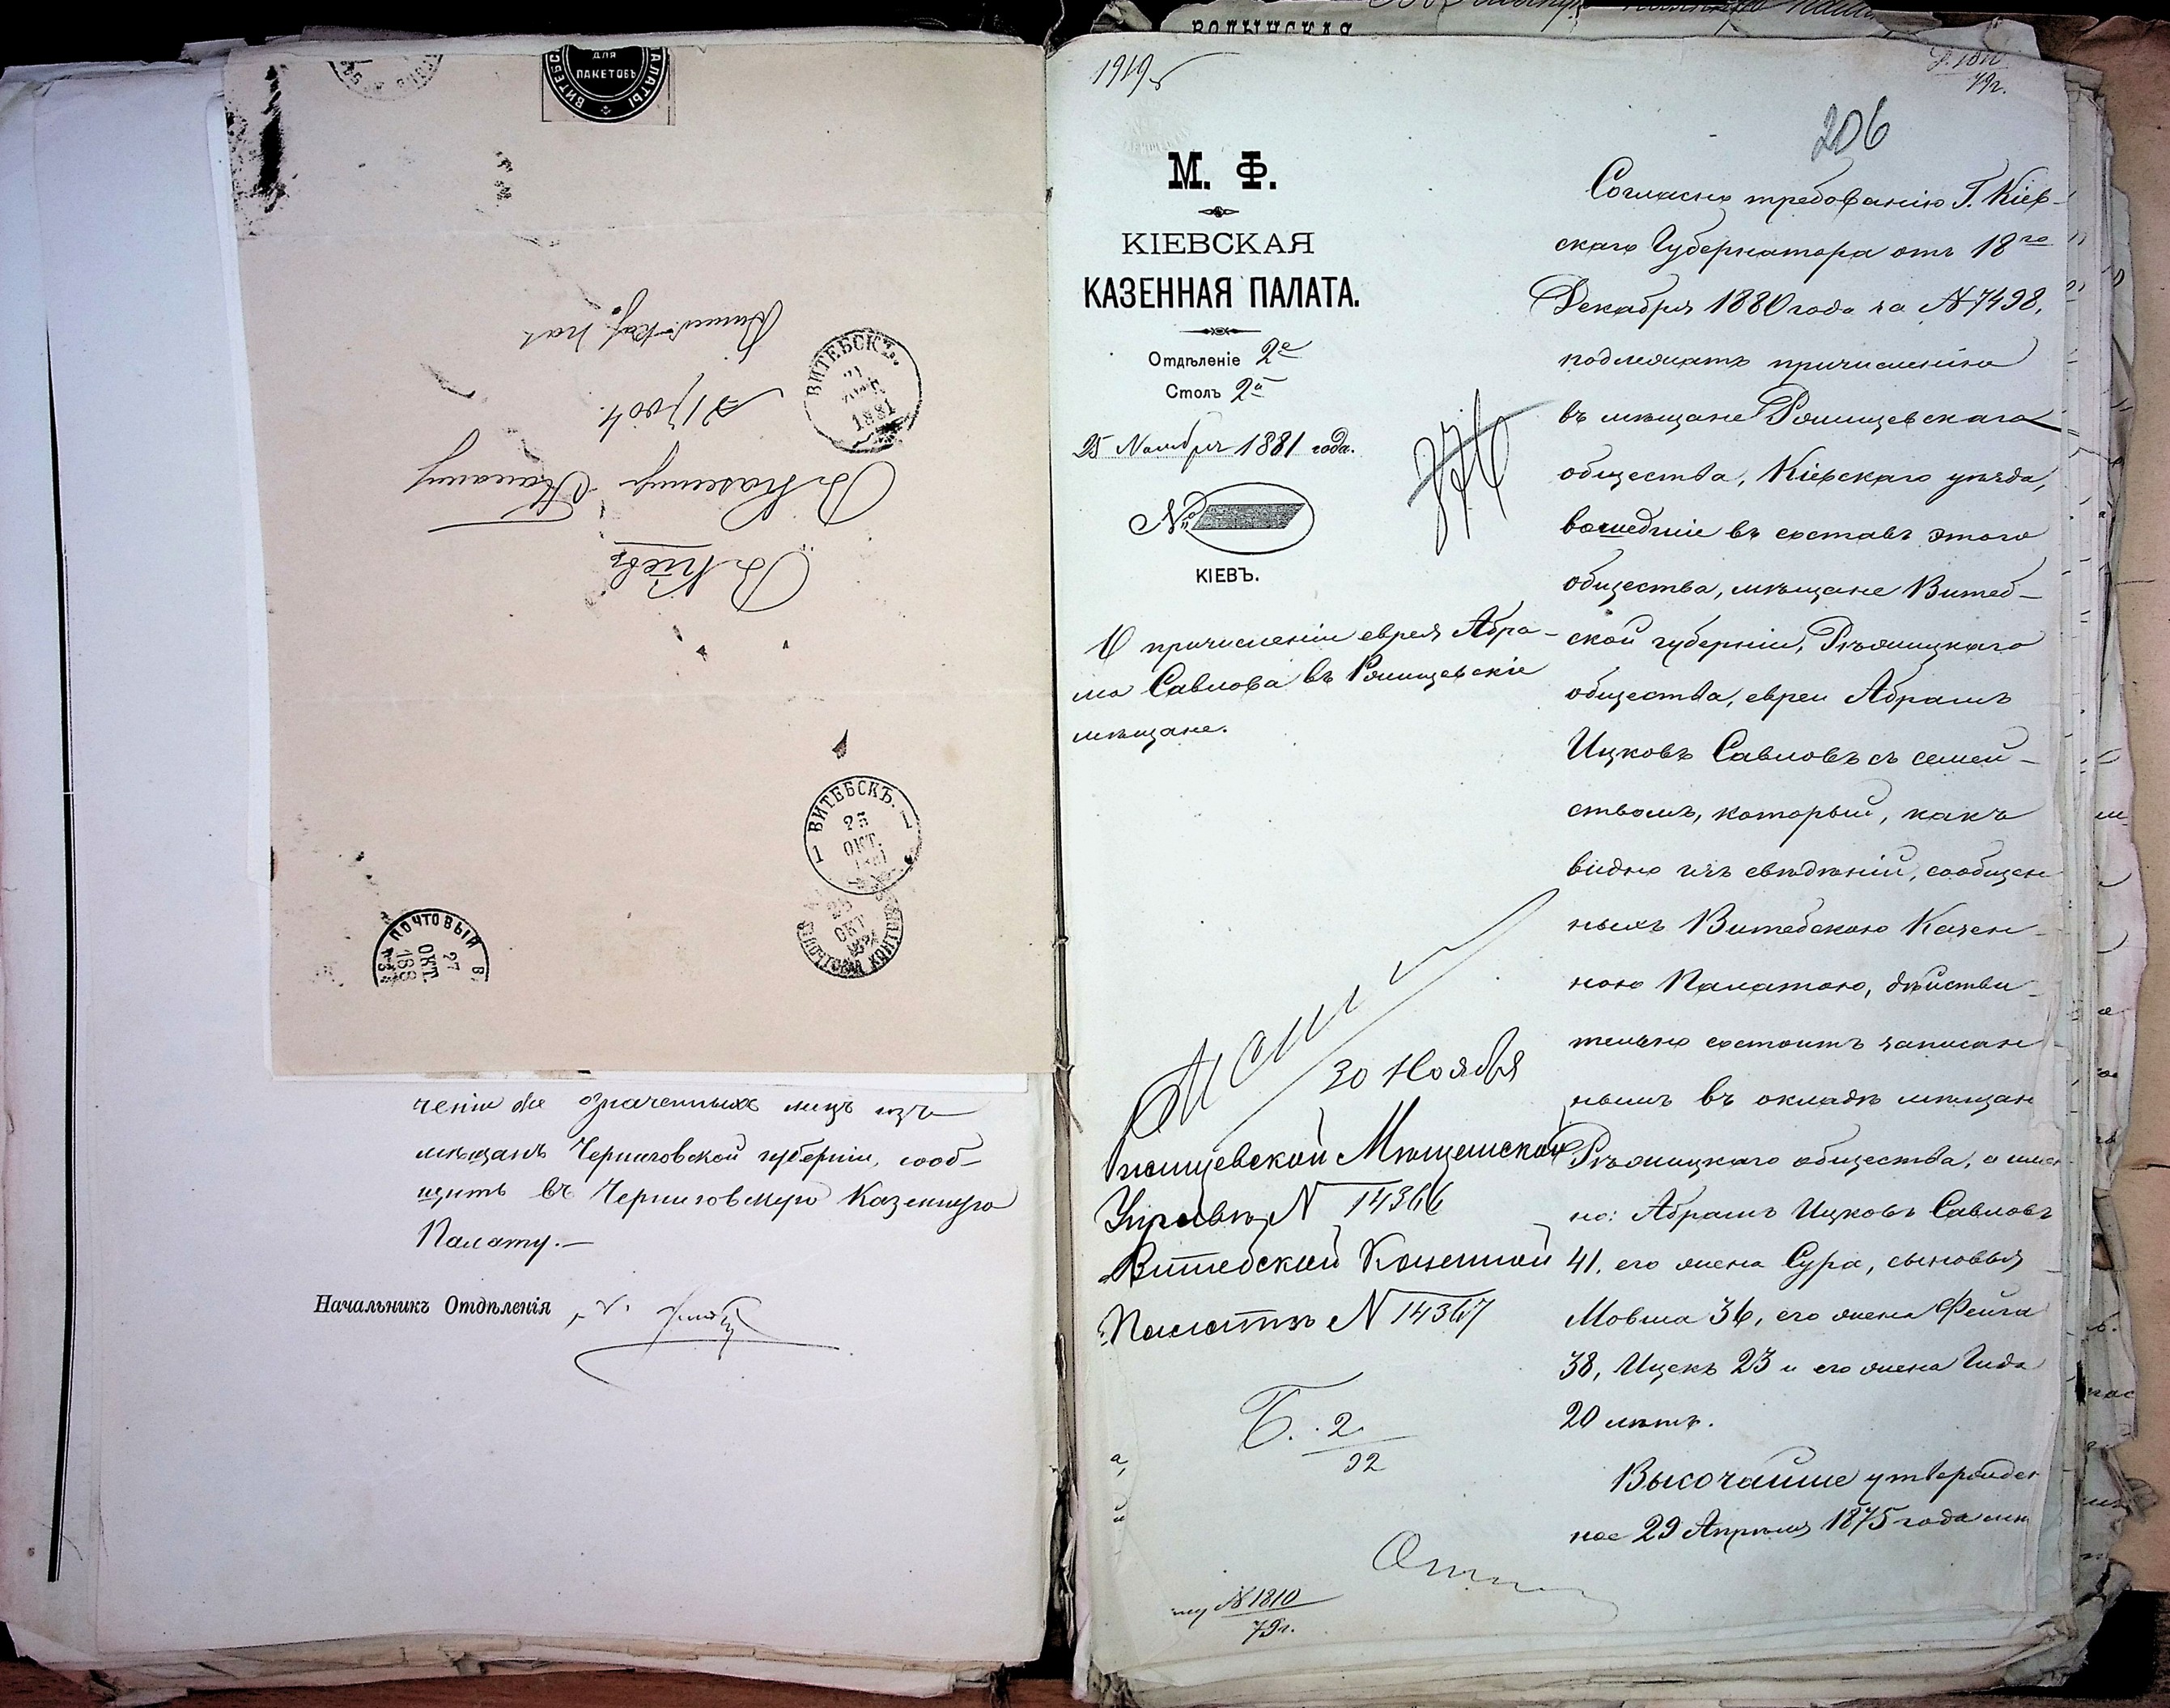 ДЛЯ
ПАКЕТОВЪ
ВИТЕБСК
ПАЛАТЫ
Въ Кіевъ
Въ Казенную Палату
№ 17004.
ВИТЕБСКЪ.
21
1881
1 ВИТЕБСКЪ. 1
23
ОКТ.
1881
23
ОКТ
1881
ПОЧТОВАЯ КОНТОРА
ПОЧТОВЫЙ В.
27
ОКТ.
188
ченіи же означенныхъ лицъ изъ
мѣщанъ Черниговской губерніи, сооб-
щить въ Черниговскую Казенную
Палату.—
Начальникъ Отдѣленія
ВОЛЫНСКАЯ
1919
79г.
206
М. Ф.
КІЕВСКАЯ
КАЗЕННАЯ ПАЛАТА.
Отдѣленіе 2е
Столъ 2й
25 Ноября 1881 года.
№
КІЕВЪ.
О причисленіи еврея Абра-
ма Савлова въ Ржищевскіе
мѣщане.
30 Ноября
Ржищевской Мѣщанской
Управѣ N 14366
Витебской Казенной
Палатѣ N 14367
Б. 2
32
№ 1810
79г.
Согласно требованію Г. Кіев-
скаго Губернатора отъ 18го
Декабря 1880 года за №7498,
подлежатъ причисленію
въ мѣщане Ржищевскаго
общества, Кіевскаго уѣзда,
вошедшіе въ составъ этого
общества, мѣщане Витеб-
ской губерніи, Рѣжицкаго
общества, евреи Абрамъ
Ицковъ Савловъ съ семей-
ствомъ, который, какъ
видно изъ свѣдѣній, сообщен
ныхъ Витебскою Казен-
ною Палатою, дѣйстви-
тельно состоитъ записан
нымъ въ окладѣ мѣщан
Рѣжицкаго общества, а имен
но: Абрамъ Ицковъ Савловъ
41, его жена Сура, сыновья
Мовша 36, его жена Фейга
38, Ицекъ 23 и его жена Гида
20 лѣтъ.
Высочайше утвержден
ное 29 Апрѣля 1875 года мн